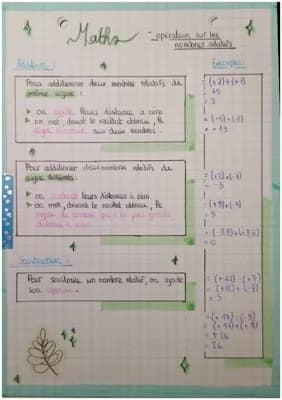 Maths
- opération sur les
nombres relatifs
Addition :
Exemples :
Pour additionner deux nombres relatifs de
même signe :
on ajoute leurs distances à zéro
on met, devant le résultat obtenu, le
signe commun aux deux nombres.
Pour additionner deux nombres relatifs de
signe différents.
on soustrait leurs distances à zéro
on met, devant le résultat obtenu, le
signe du nombre qui a la plus grande
distance à zéro.
Soustraction :
Pour soustraire un nombre relatif, on ajoute
son opposé.
= (+2)+(+7)
= +9
= 9
= 0
= (+12) - (+7)
= (+12) + (-7)
= 5
= (+17) - (-9)
= (+17) + (+9)
= + 26
= 26